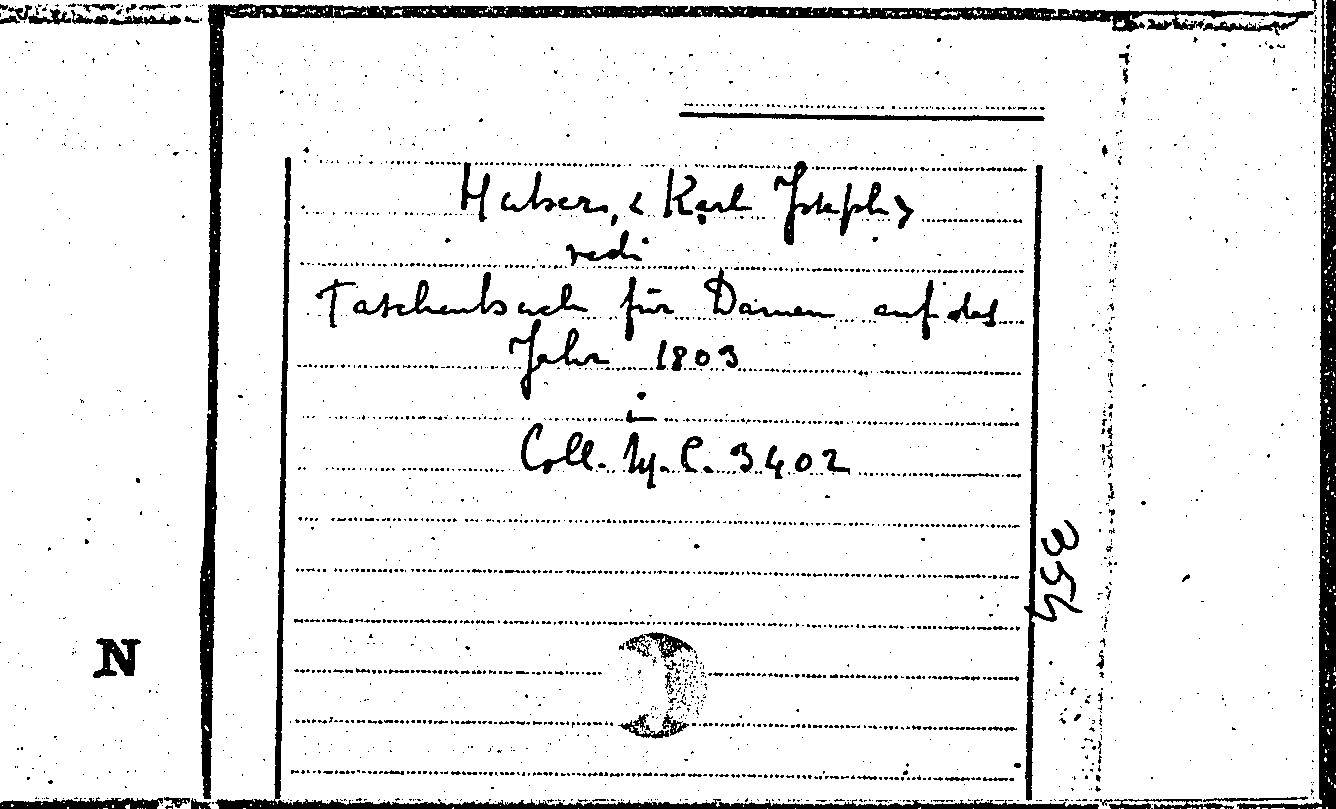 Huber, < Karl Joseph >
vedi
Taschenbuch für Damen auf das
Jahr 1803
in
Coll. M. C. 3402
354
N